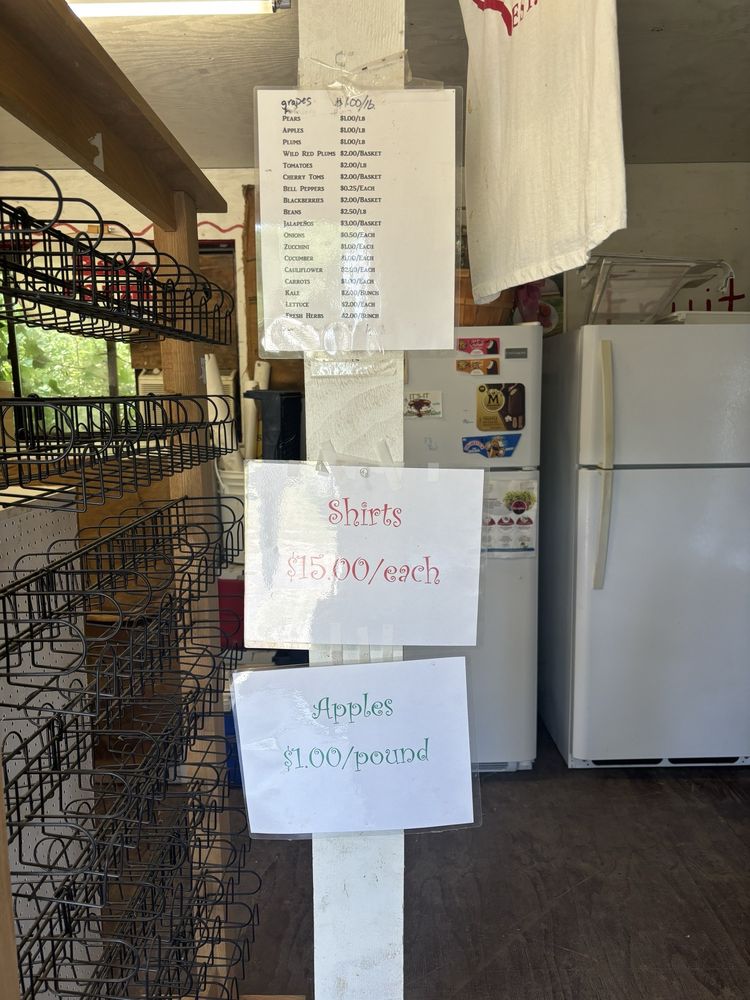 grapes $1.00/lb.
Pears $1.00/lb
Apples $1.00/lb
Plums $1.00/lb
Wild Red Plums $2.00/Basket
Tomatoes $2.00/lb
Cherry Toms $2.00/Basket
Bell Peppers $0.25/Each
Blackberries $2.00/Basket
Beans $2.50/lb
Jalapeños $3.00/Basket
Onions $0.50/Each
Zucchini $1.00/Each
Cucumber $1.00/Each
Cauliflower $2.00/Each
Carrots $1.00/Each
Kale $2.00/Bunch
Lettuce $2.00/Each
Fresh Herbs $2.00/Bunch
IT'S-IT
M
Shirts
$15.00/each
Apples
$1.00/pound